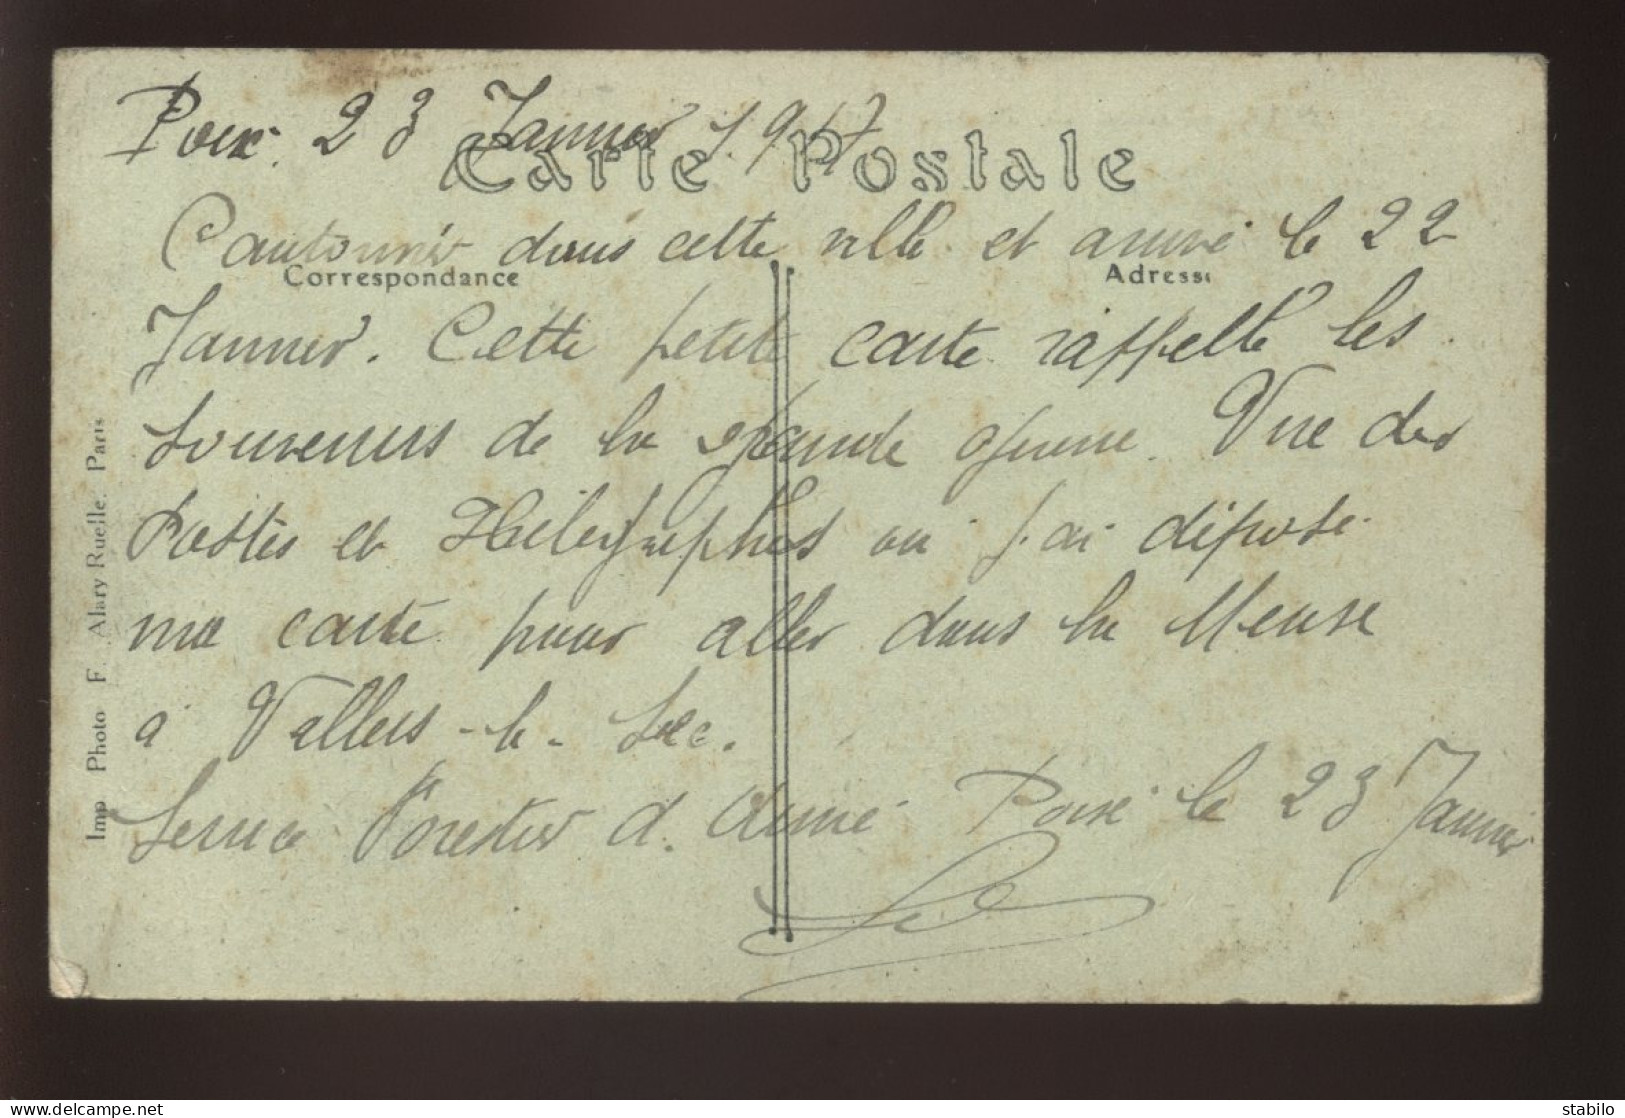 Poix. 23 Janvier 1917
Carte Postale
Cantonnés dans cette ville et arrivé le 22
Correspondance
Adresse
Janvier. Cette petite carte rappelle les
souvenirs de la grande guerre. Vue des
Postes et Télégraphes où j'ai déposé
ma carte pour aller dans la Meuse
à Villers-le-Sec.
Service Forestier d. Armé Poix le 23 Janvier
Imp Photo F. Alary Ruelle. Paris
stabilo